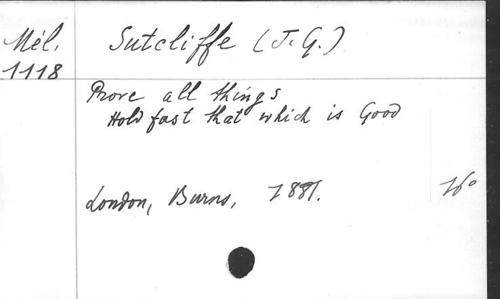 Mél.
1118
Sutcliffe (J. G.)
Prove all things
Hold fast that which is Good
London, Burns, 1881.
16º